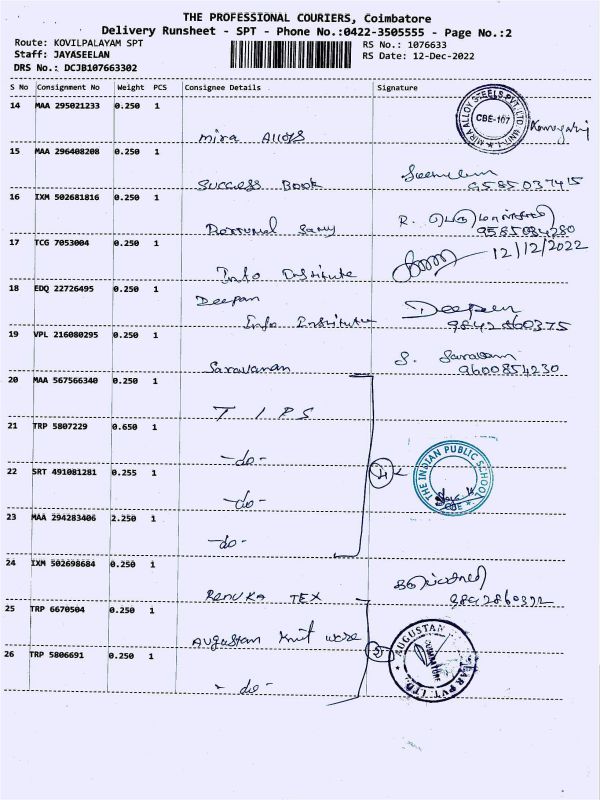 THE PROFESSIONAL COURIERS, Coimbatore
Delivery Runsheet - SPT - Phone No.:0422-3505555 - Page No.:2
Route: KOVILPALAYAM SPT
RS No.: 1076633
Staff: JAYASEELAN
RS Date: 12-Dec-2022
DRS No.: DCJB107663302
S No Consignment No Weight PCS Consignee Details Signature
14 MAA 295021233 0.250 1
MIRA ALLOY STEELS PVT. LTD UNIT-I CBE-107
Mira Alloys
15 MAA 296408208 0.250 1
Success Book
9585037415
16 IXM 502681816 0.250 1
R.
9585034280
17 TCG 7053004 0.250 1
12/12/2022
Info Institute
18 EDQ 22726495 0.250 1
Deepan
Deepan
Info Institute
19 VPL 216080295 0.250 1
S. Saravanan
Saravanan
9600854230
20 MAA 567566340 0.250 1
T I P S
21 TRP 5807229 0.650 1
-do-
22 SRT 491081281 0.255 1
THE INDIAN PUBLIC SCHOOL CBE
-do-
23 MAA 294283406 2.250 1
-do-
24 IXM 502698684 0.250 1
RENUKA TEX
25 TRP 6670504 0.250 1
Augustan Knit Ware
26 TRP 5806691 0.250 1
AUGUSTAN COIMBATORE
-do-